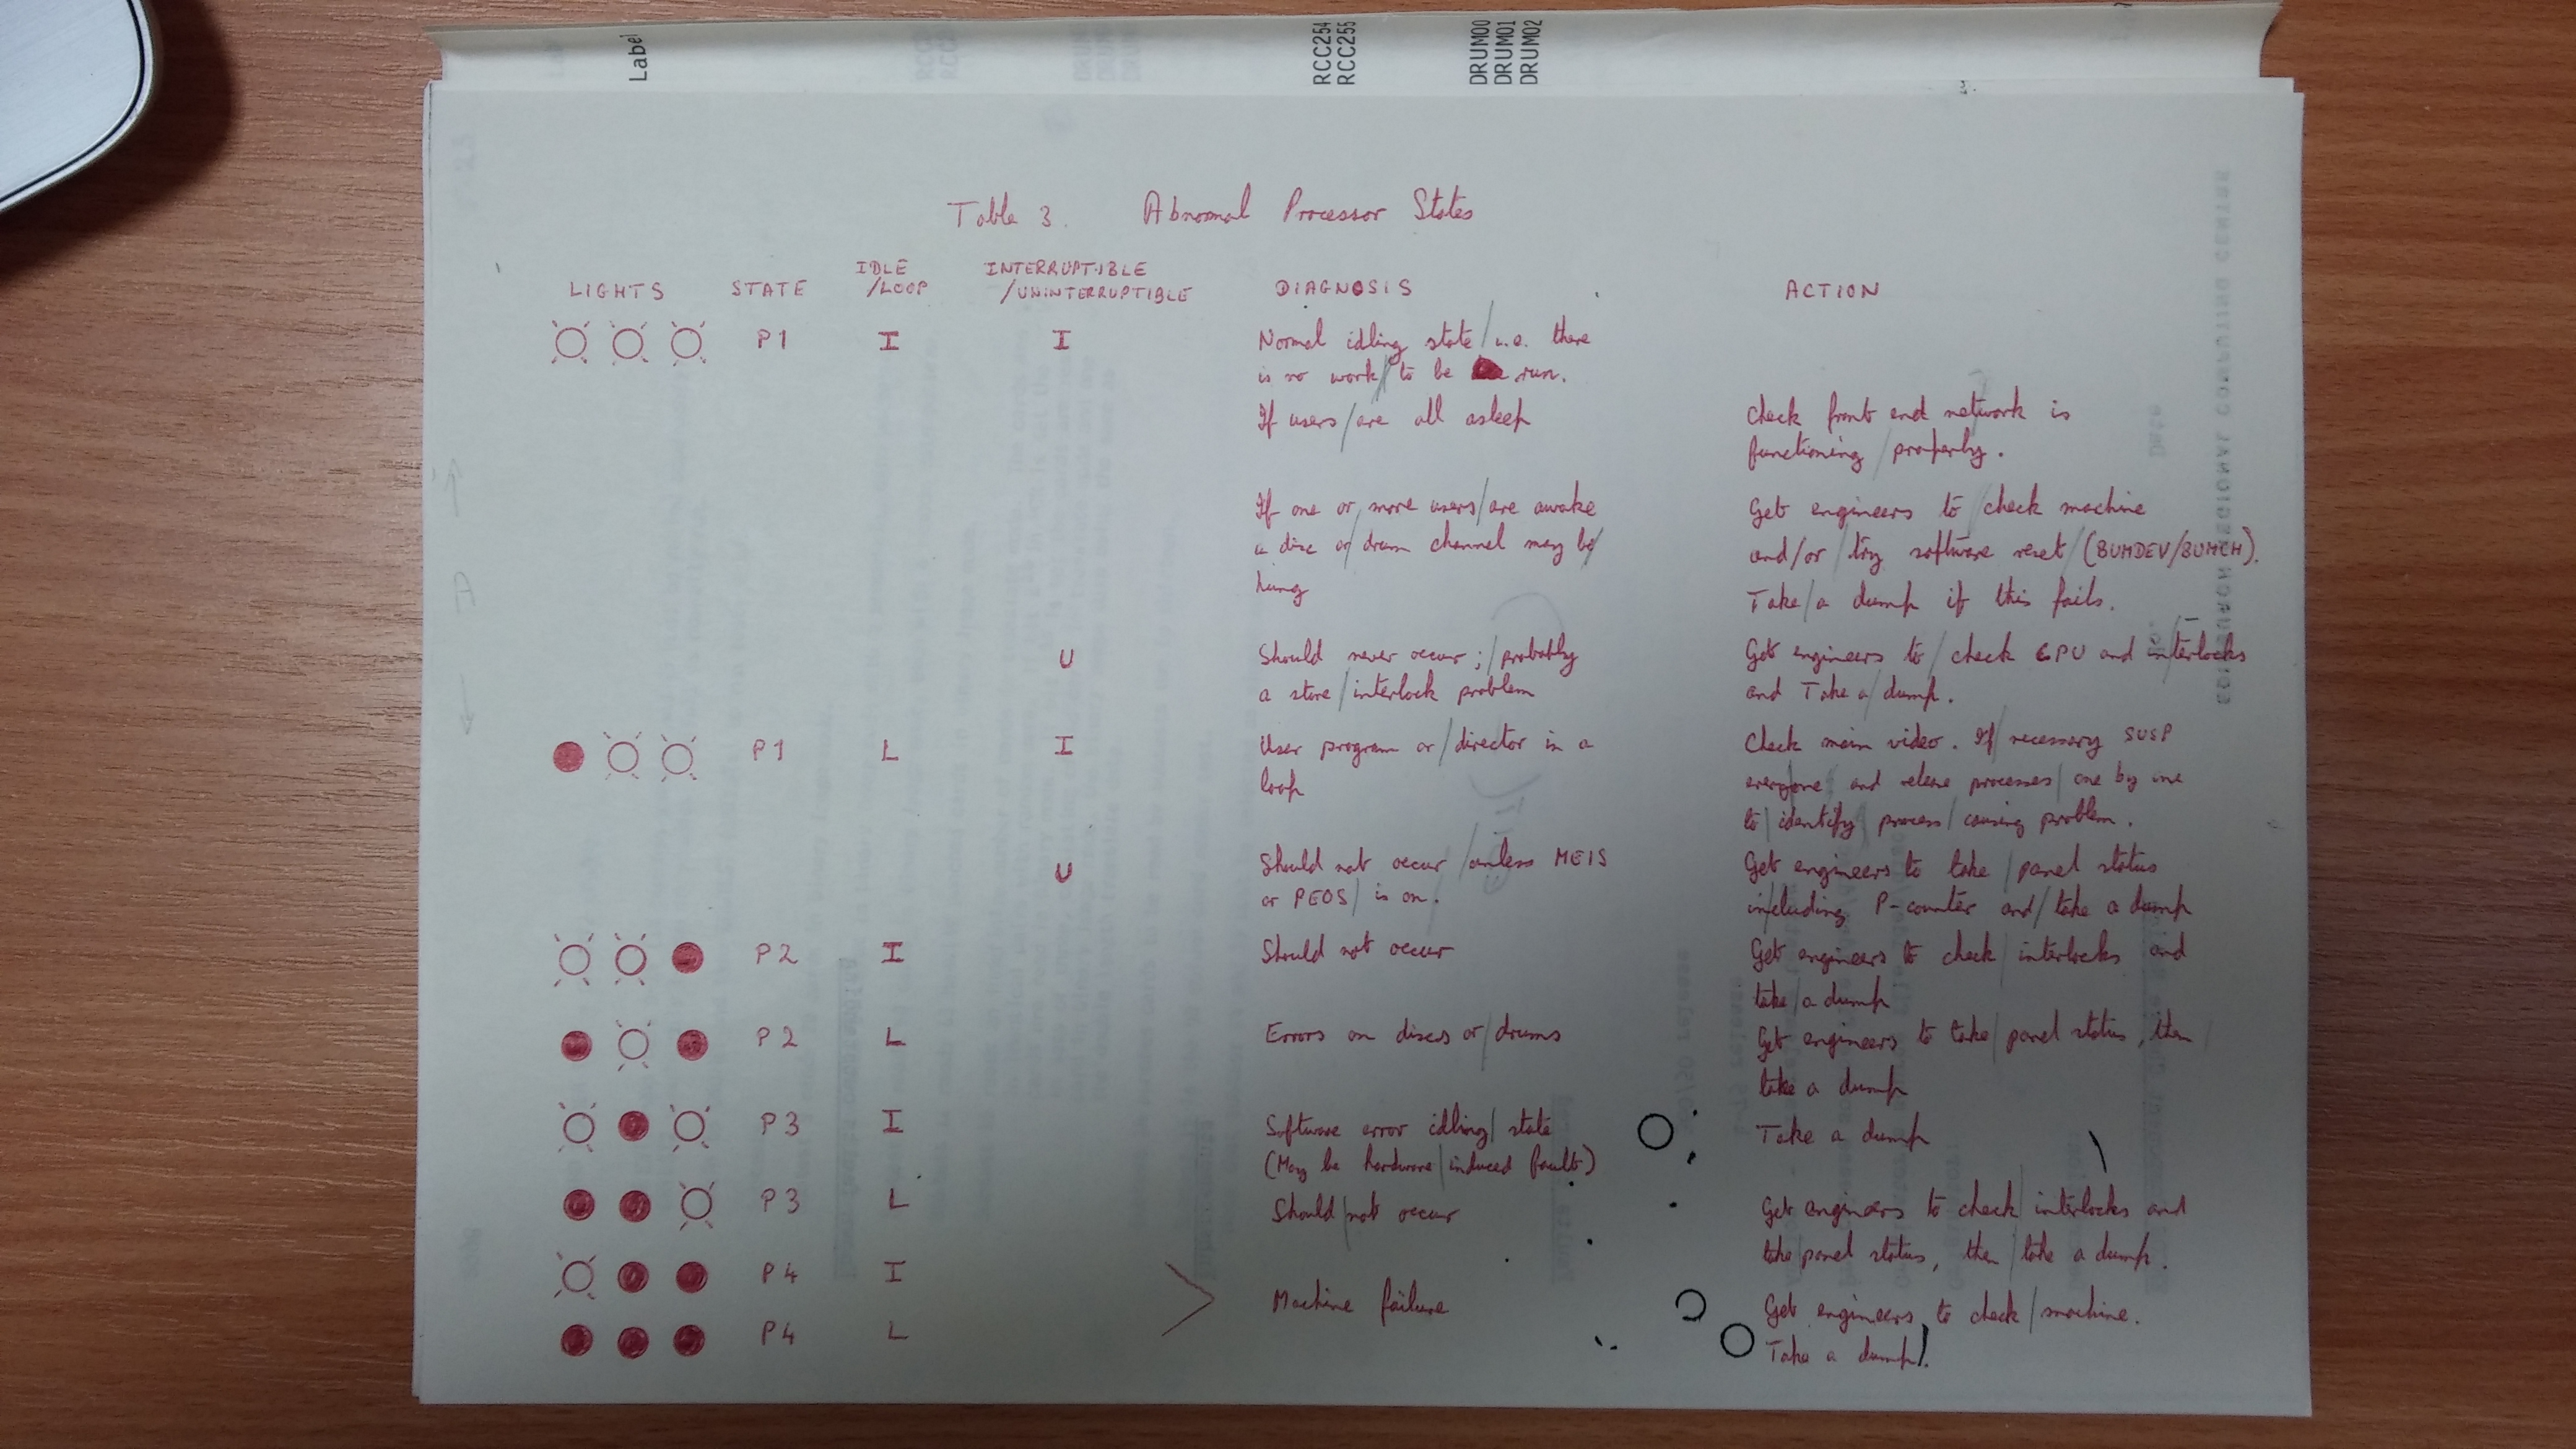 Label
RCC254
RCC255
DRUM00
DRUM01
DRUM02
Table 3. Abnormal Processor States
LIGHTS STATE IDLE /LOOP INTERRUPTIBLE /UNINTERRUPTIBLE DIAGNOSIS ACTION
P1 I I Normal idling state/i.e. there
is no work/to be run.
If users/are all asleep Check front end network is
functioning/properly.
If one or/more users/are awake Get engineers to/check machine
a disc or/drum channel may be/ and/or/try software reset/(BUMDEV/BUMCH).
hung Take/a dump if this fails.
U Should never occur;/probably Get engineers to/check CPU and interlocks
a store/interlock problem and Take a/dump.
P1 L I User program or/director in a Check main video. If/necessary SUSP
loop everyone and release processes/one by one
to/identify process/causing problem.
U Should not occur/unless MEIS Get engineers to take/panel status
or PEOS/is on. including P-counter and/take a dump
P2 I Should not occur Get engineers to check/interlocks and
take/a dump
P2 L Errors on discs or/drums Get engineers to take/panel status, then
take a dump
P3 I Software error idling/state Take a dump
(May be hardware/induced fault)
P3 L Should/not occur Get engineers to check/interlocks and
take/panel status, then/take a dump.
P4 I Machine failure Get engineers to check/machine.
P4 L Take a dump!